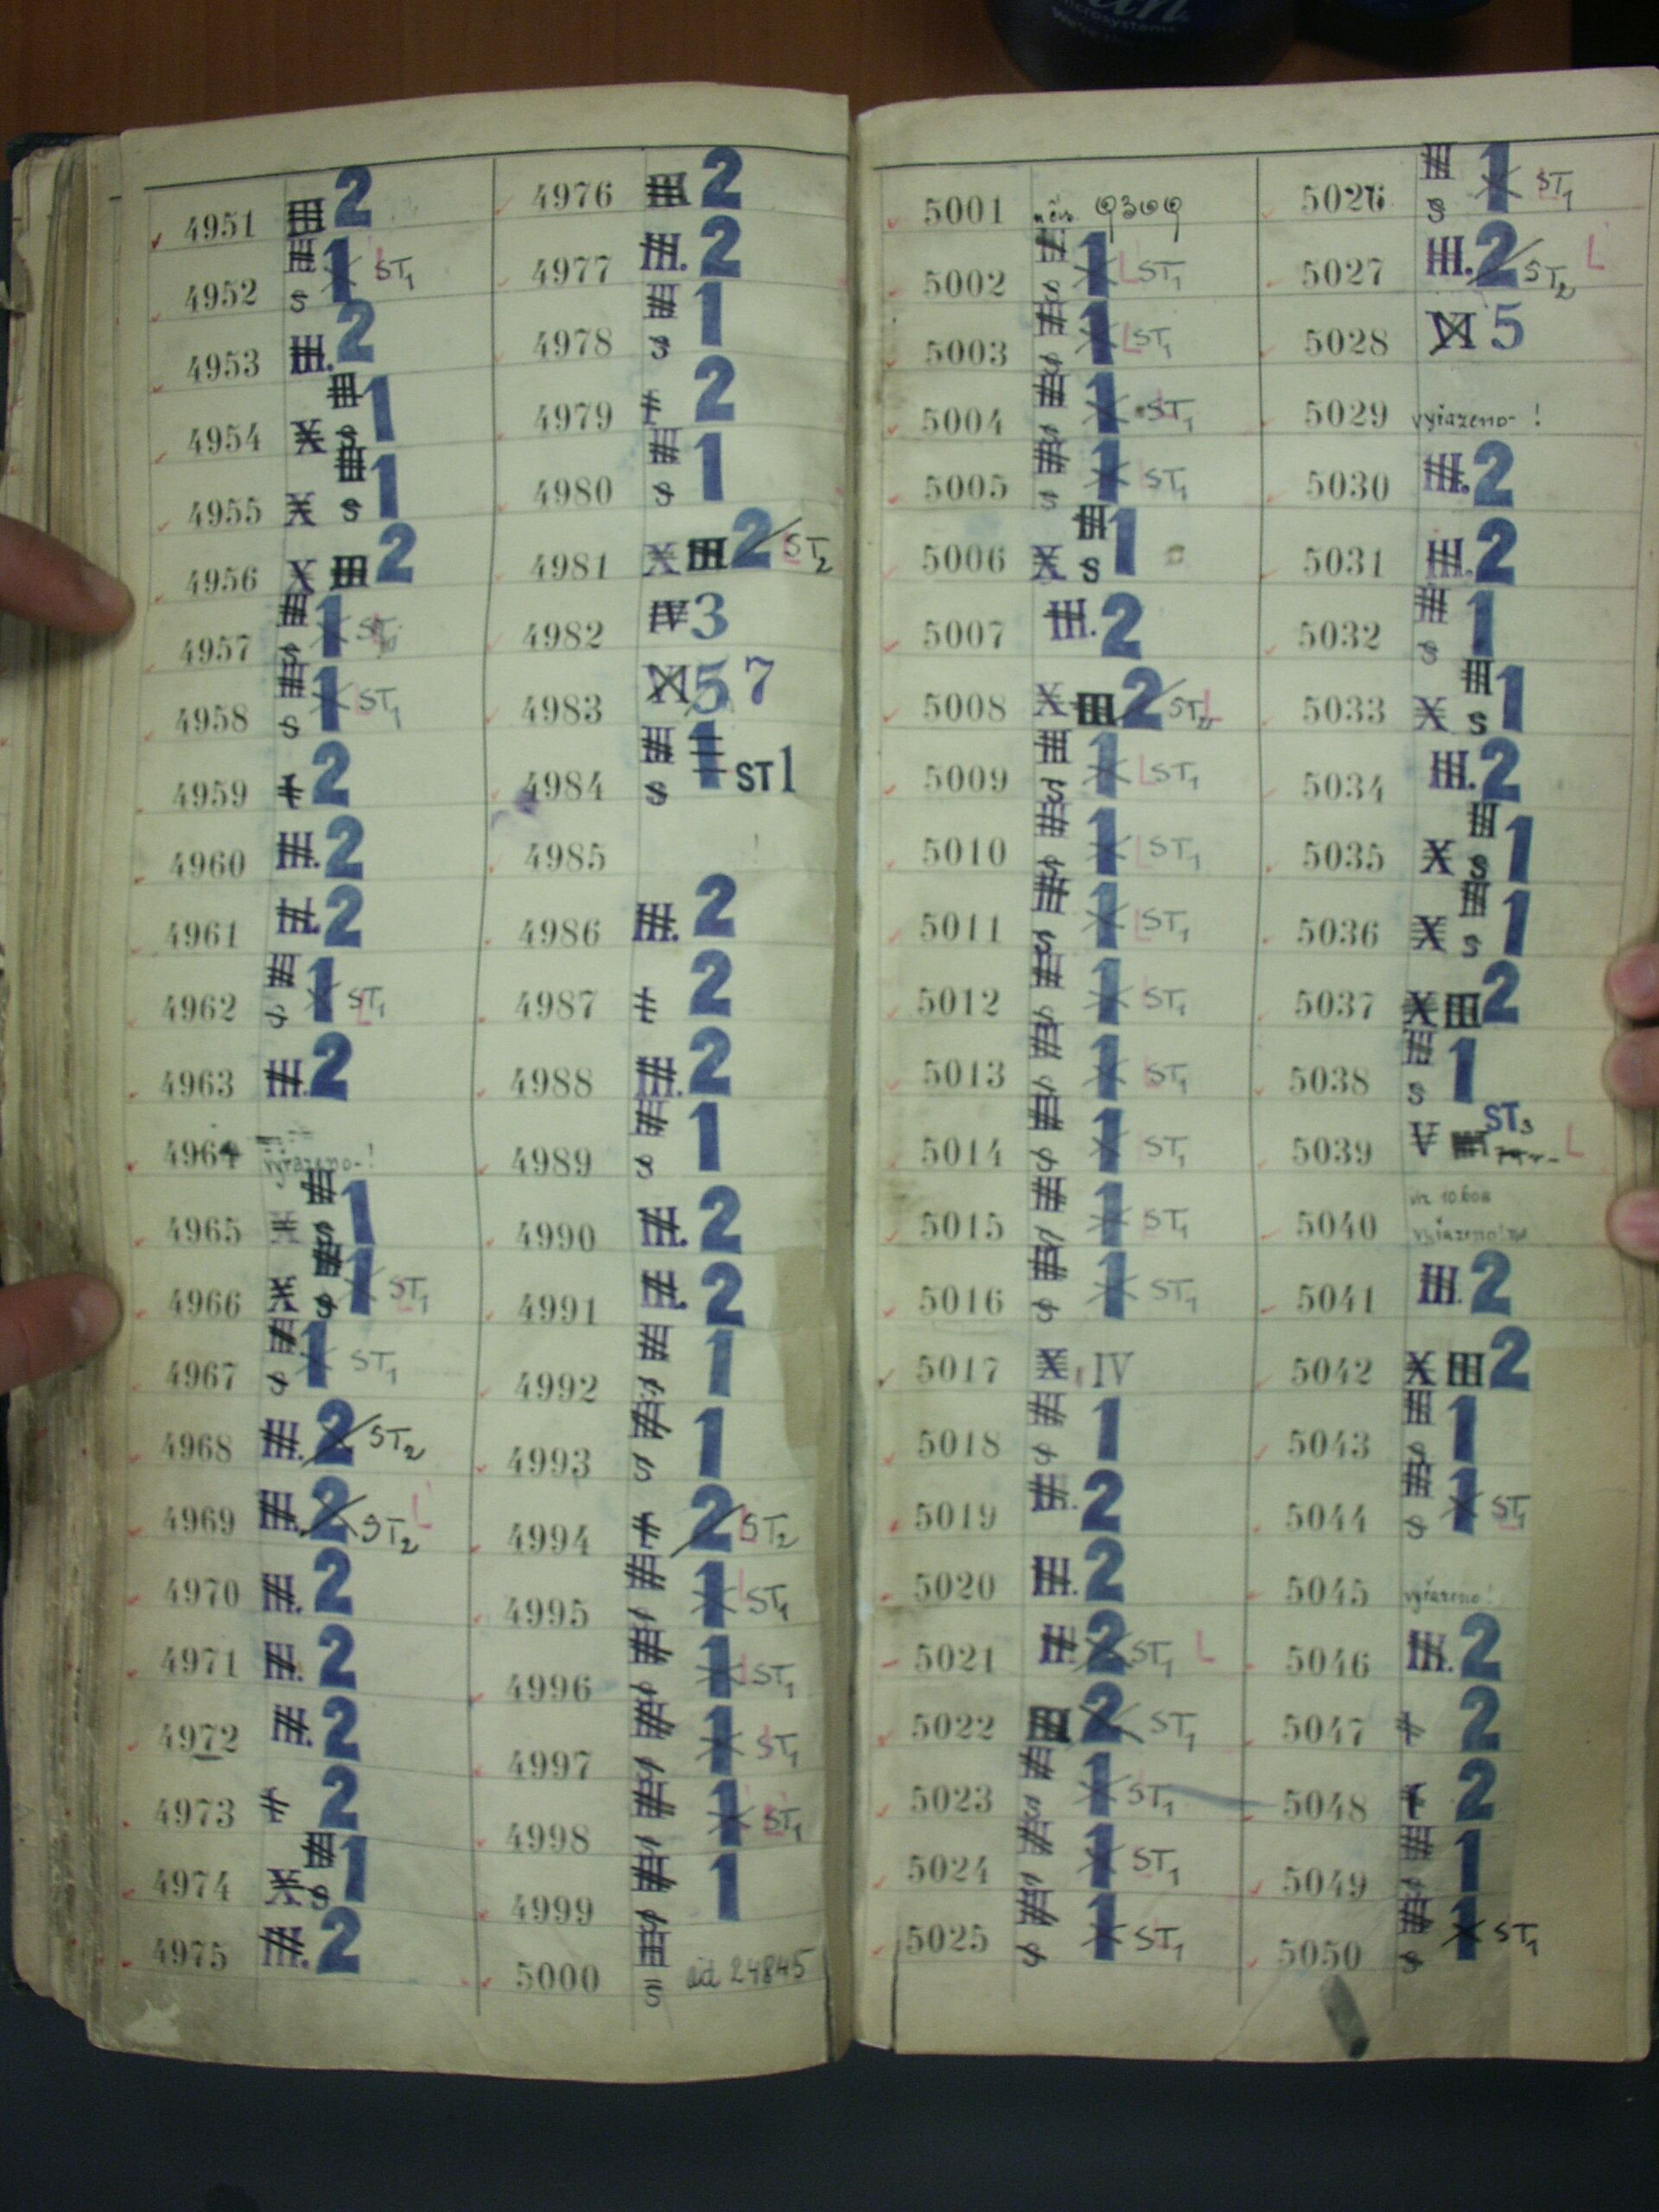 microsystems
4951 III 2
4952 III s 1 ST1 L
4953 III. 2
4954 X III s 1
4955 X III s 1
4956 X III 2
4957 III s 1
4958 III s 1 ST1 L
4959 I 2
4960 III. 2
4961 III. 2
4962 III s 1 ST1 L
4963 III. 2
4964 vyřazeno-!
4965 X III s 1
4966 X III s 1 ST1 L
4967 III s 1 ST1
4968 III. 2 ST2
4969 III. 2 ST2 L
4970 III. 2
4971 III. 2
4972 III. 2
4973 I 2
4974 X III s 1
4975 III. 2
4976 III 2
4977 III. 2
4978 III s 1
4979 I 2
4980 III s 1
4981 X III 2 ST2 L
4982 IV 3
4983 XI 5 7
4984 III s 1 ST1
4985
4986 III. 2
4987 I 2
4988 III. 2
4989 III s 1
4990 III. 2
4991 III. 2
4992 III s 1
4993 III s 1
4994 I 2 ST2 L
4995 III s 1 ST1 L
4996 III s 1 ST1 L
4997 III s 1 ST1 L
4998 III s 1 ST1 L
4999 III s 1
5000 III s 24845
5001 9309
5002 III s 1 L ST1
5003 III s 1 L ST1
5004 III s 1 ST1
5005 III s 1 ST1
5006 X III s 1
5007 III. 2
5008 X III. 2 ST2 L
5009 III s 1 L ST1
5010 III s 1 L ST1
5011 III s 1 L ST1
5012 III s 1 ST1
5013 III s 1 L ST1
5014 III s 1 ST1
5015 III s 1 ST1
5016 III s 1 ST1
5017 X IV
5018 III s 1
5019 III. 2
5020 III. 2
5021 III 2 ST1 L
5022 III 2 ST1
5023 III s 1 ST1
5024 III s 1 ST1
5025 III s 1 ST1
5026 III s 1 ST1
5027 III. 2 ST2 L
5028 XI 5
5029 vyřazeno-!
5030 III. 2
5031 III. 2
5032 III s 1
5033 X III s 1
5034 III. 2
5035 X III s 1
5036 X III s 1
5037 X III 2
5038 III s 1
5039 V ST3 L
5040 viz 10.608 vyřazeno!
5041 III. 2
5042 X III 2
5043 III s 1
5044 III s 1 ST1 L
5045 vyřazeno!
5046 III. 2
5047 I 2
5048 I 2
5049 III s 1
5050 III s 1 ST1